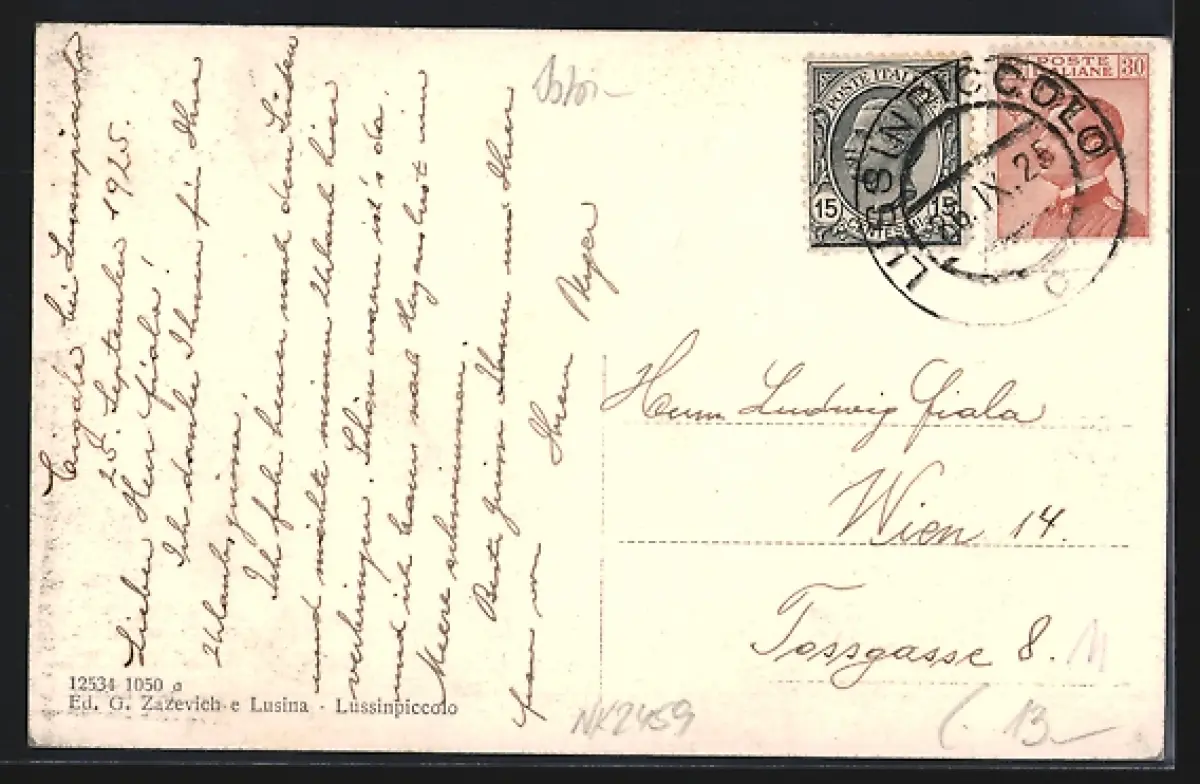 Cigale bei Lussinpiccolo
25. September 1925.
Lieber Herr Fiala!
Ich danke Ihnen für Ihre
Urlaubsgrüsse.
Ich fuhr heuer nach dem Süden
und möchte meinen Urlaub hier
verbringen. Schön warm ist's da.
und ich kann nach Herzenslust im
Meere schwimmen.
Beste Grüsse Ihnen und Ihrer
Frau von
Ihrem
12534 1050 a
Ed. G. Zazevich e Lusina - Lussinpiccolo
Istor-
POSTE ITALIANE
15 15
CENTESIMI
POSTE
ITALIANE 30
LUSSINPICCOLO
26.IX.25
Herrn Ludwig Fiala
Wien 14.
Tossgasse 8. 11
NK2459
13-